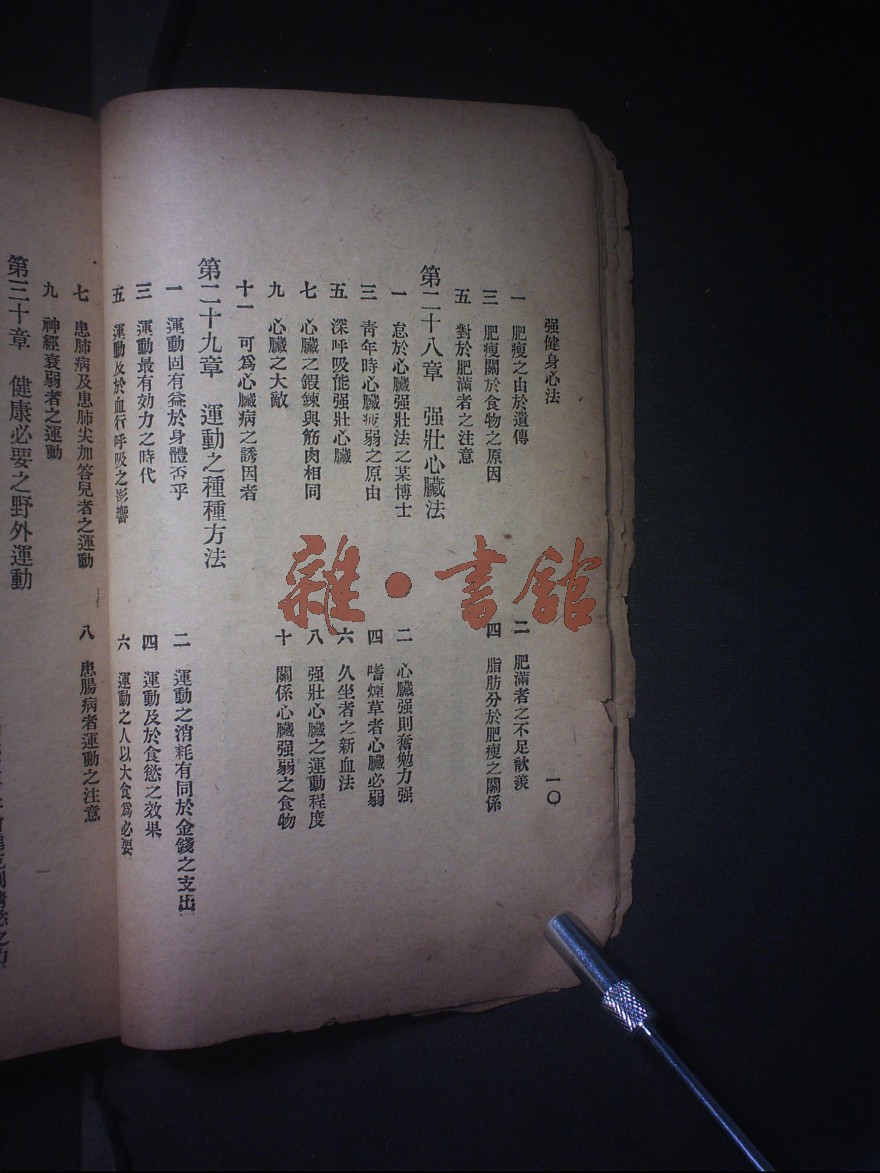 强健身心法
一〇
一 肥瘦之由於遺傳
二 肥滿者之不足歆羨
三 肥瘦關於食物之原因
四 脂肪分於肥瘦之關係
五 對於肥滿者之注意
第二十八章 强壯心臟法
一 怠於心臟强壯法之某博士
二 心臟强則奮勉力强
三 青年時心臟疲弱之原由
四 嗜煙草者心臟必弱
五 深呼吸能强壯心臟
六 久坐者之新血法
七 心臟之鍜鍊與筋肉相同
八 强壯心臟之運動程度
九 心臟之大敵
十 關係心臟强弱之食物
十一 可爲心臟病之誘因者
第二十九章 運動之種種方法
一 運動固有益於身體否乎
二 運動之消耗有同於金錢之支出
三 運動最有効力之時代
四 運動及於食慾之效果
五 運動及於血行呼吸之影響
六 運動之人以大食爲必要
七 患肺病及患肺尖加答兒者之運動
八 患腸病者運動之注意
九 神經衰弱者之運動
第三十章 健康必要之野外運動
雜·書館